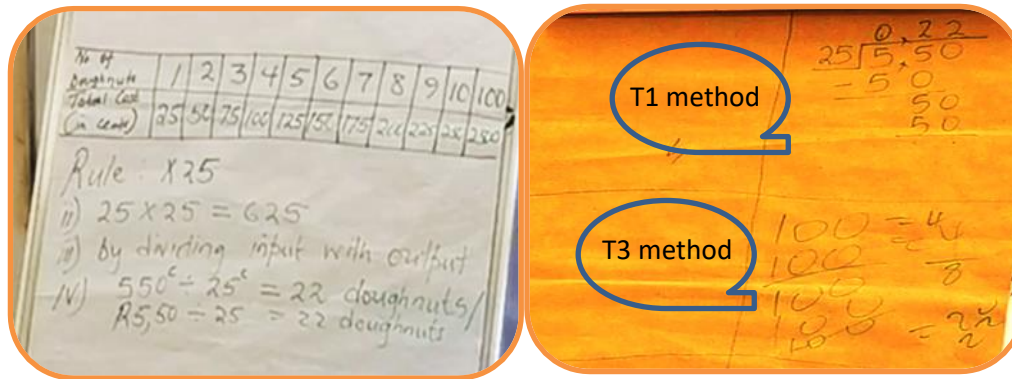 No of
Doughnuts 1 2 3 4 5 6 7 8 9 10 100
Total Cost
(in cents) 25 50 75 100 125 150 175 200 225 250 250
Rule : x25
ii) 25 x 25 = 625
iii) by dividing input with output
IV) 550c ÷ 25c = 22 doughnuts/
R5,50 ÷ 25 = 22 doughnuts
T1 method
0,22
25 5,50
- 50
50
50
T3 method
100 = 4
100
8
100
100 = 22